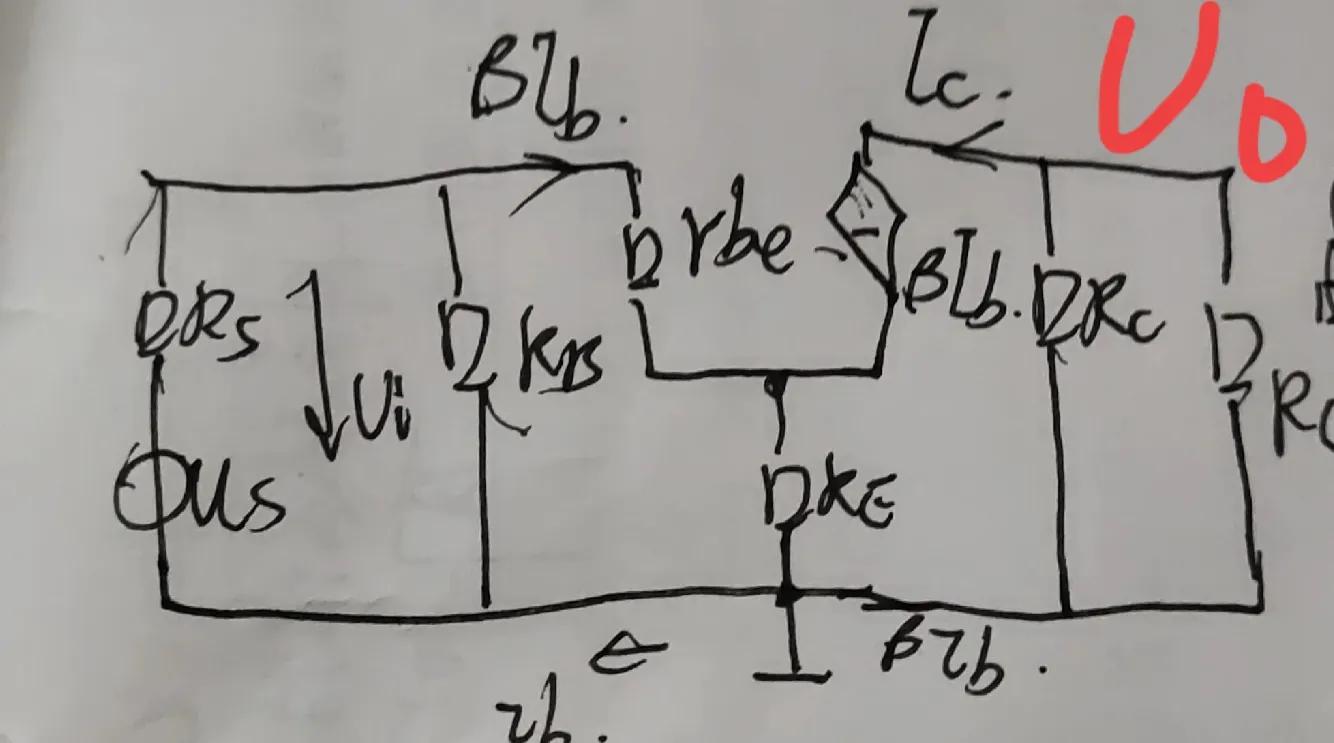 βIb.
Ic.
Uo
rbe
βIb.
Rs
Ui
RB
Rc
Us
RE
βIb.
Ib.